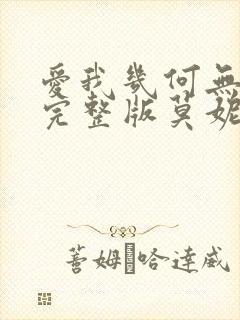 愛我幾何無
完整版莫妮
蓍姆·哈達威